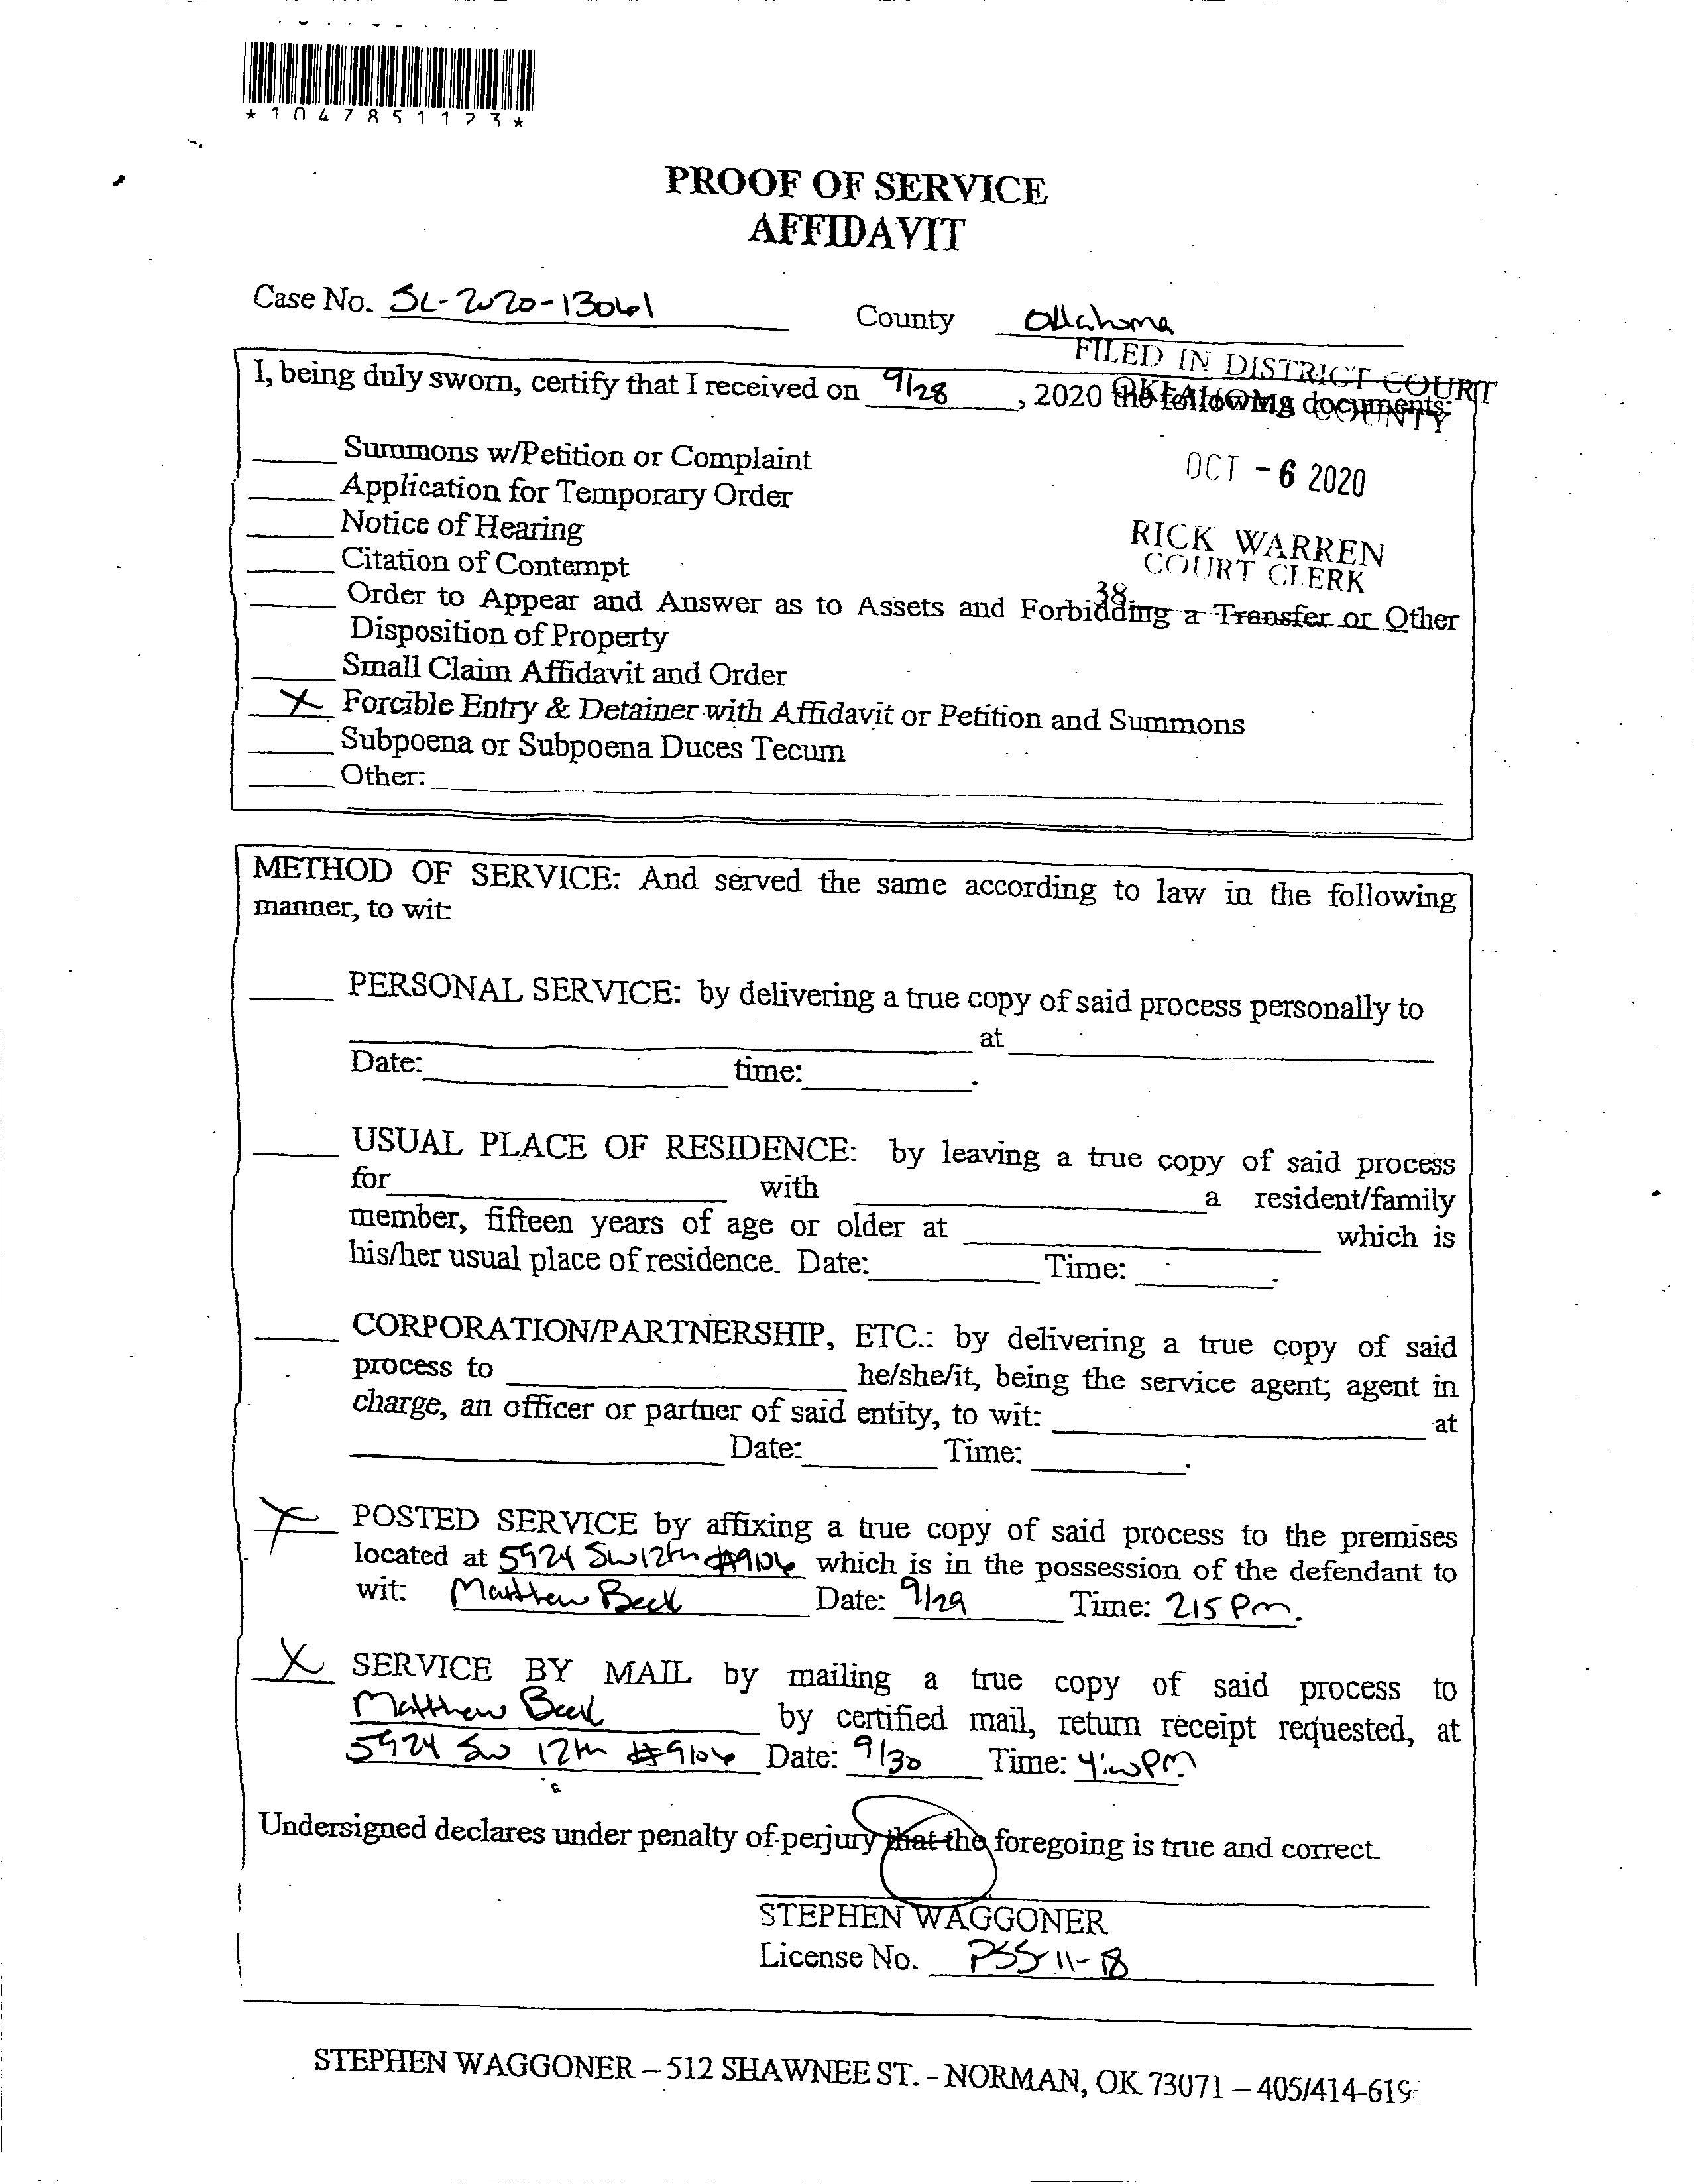 *1047851123*
PROOF OF SERVICE
AFFIDAVIT
Case No. SC-2020-13061
County Oklahoma
FILED IN DISTRICT COURT
OKLAHOMA COUNTY
I, being duly sworn, certify that I received on 9/28, 2020 the following documents:
OCT - 6 2020
RICK WARREN
COURT CLERK
38
Summons w/Petition or Complaint
Application for Temporary Order
Notice of Hearing
Citation of Contempt
Order to Appear and Answer as to Assets and Forbidding a Transfer or Other
Disposition of Property
Small Claim Affidavit and Order
X Forcible Entry & Detainer with Affidavit or Petition and Summons
Subpoena or Subpoena Duces Tecum
Other:
METHOD OF SERVICE: And served the same according to law in the following
manner, to wit:
PERSONAL SERVICE: by delivering a true copy of said process personally to
at
Date: time: .
USUAL PLACE OF RESIDENCE: by leaving a true copy of said process
for with a resident/family
member, fifteen years of age or older at which is
his/her usual place of residence. Date: Time: .
CORPORATION/PARTNERSHIP, ETC.: by delivering a true copy of said
process to he/she/it, being the service agent; agent in
charge, an officer or partner of said entity, to wit: at
Date: Time: .
X POSTED SERVICE by affixing a true copy of said process to the premises
located at 5924 SW 12th #9106 which is in the possession of the defendant to
wit: Matthew Beck Date: 9/29 Time: 215 Pm.
X SERVICE BY MAIL by mailing a true copy of said process to
Matthew Beck by certified mail, return receipt requested, at
5924 Sw 12th #9106 Date: 9/30 Time: 4:00 PM
Undersigned declares under penalty of perjury that the foregoing is true and correct.
STEPHEN WAGGONER
License No. PSS-11-18
STEPHEN WAGGONER – 512 SHAWNEE ST. - NORMAN, OK 73071 – 405/414-619